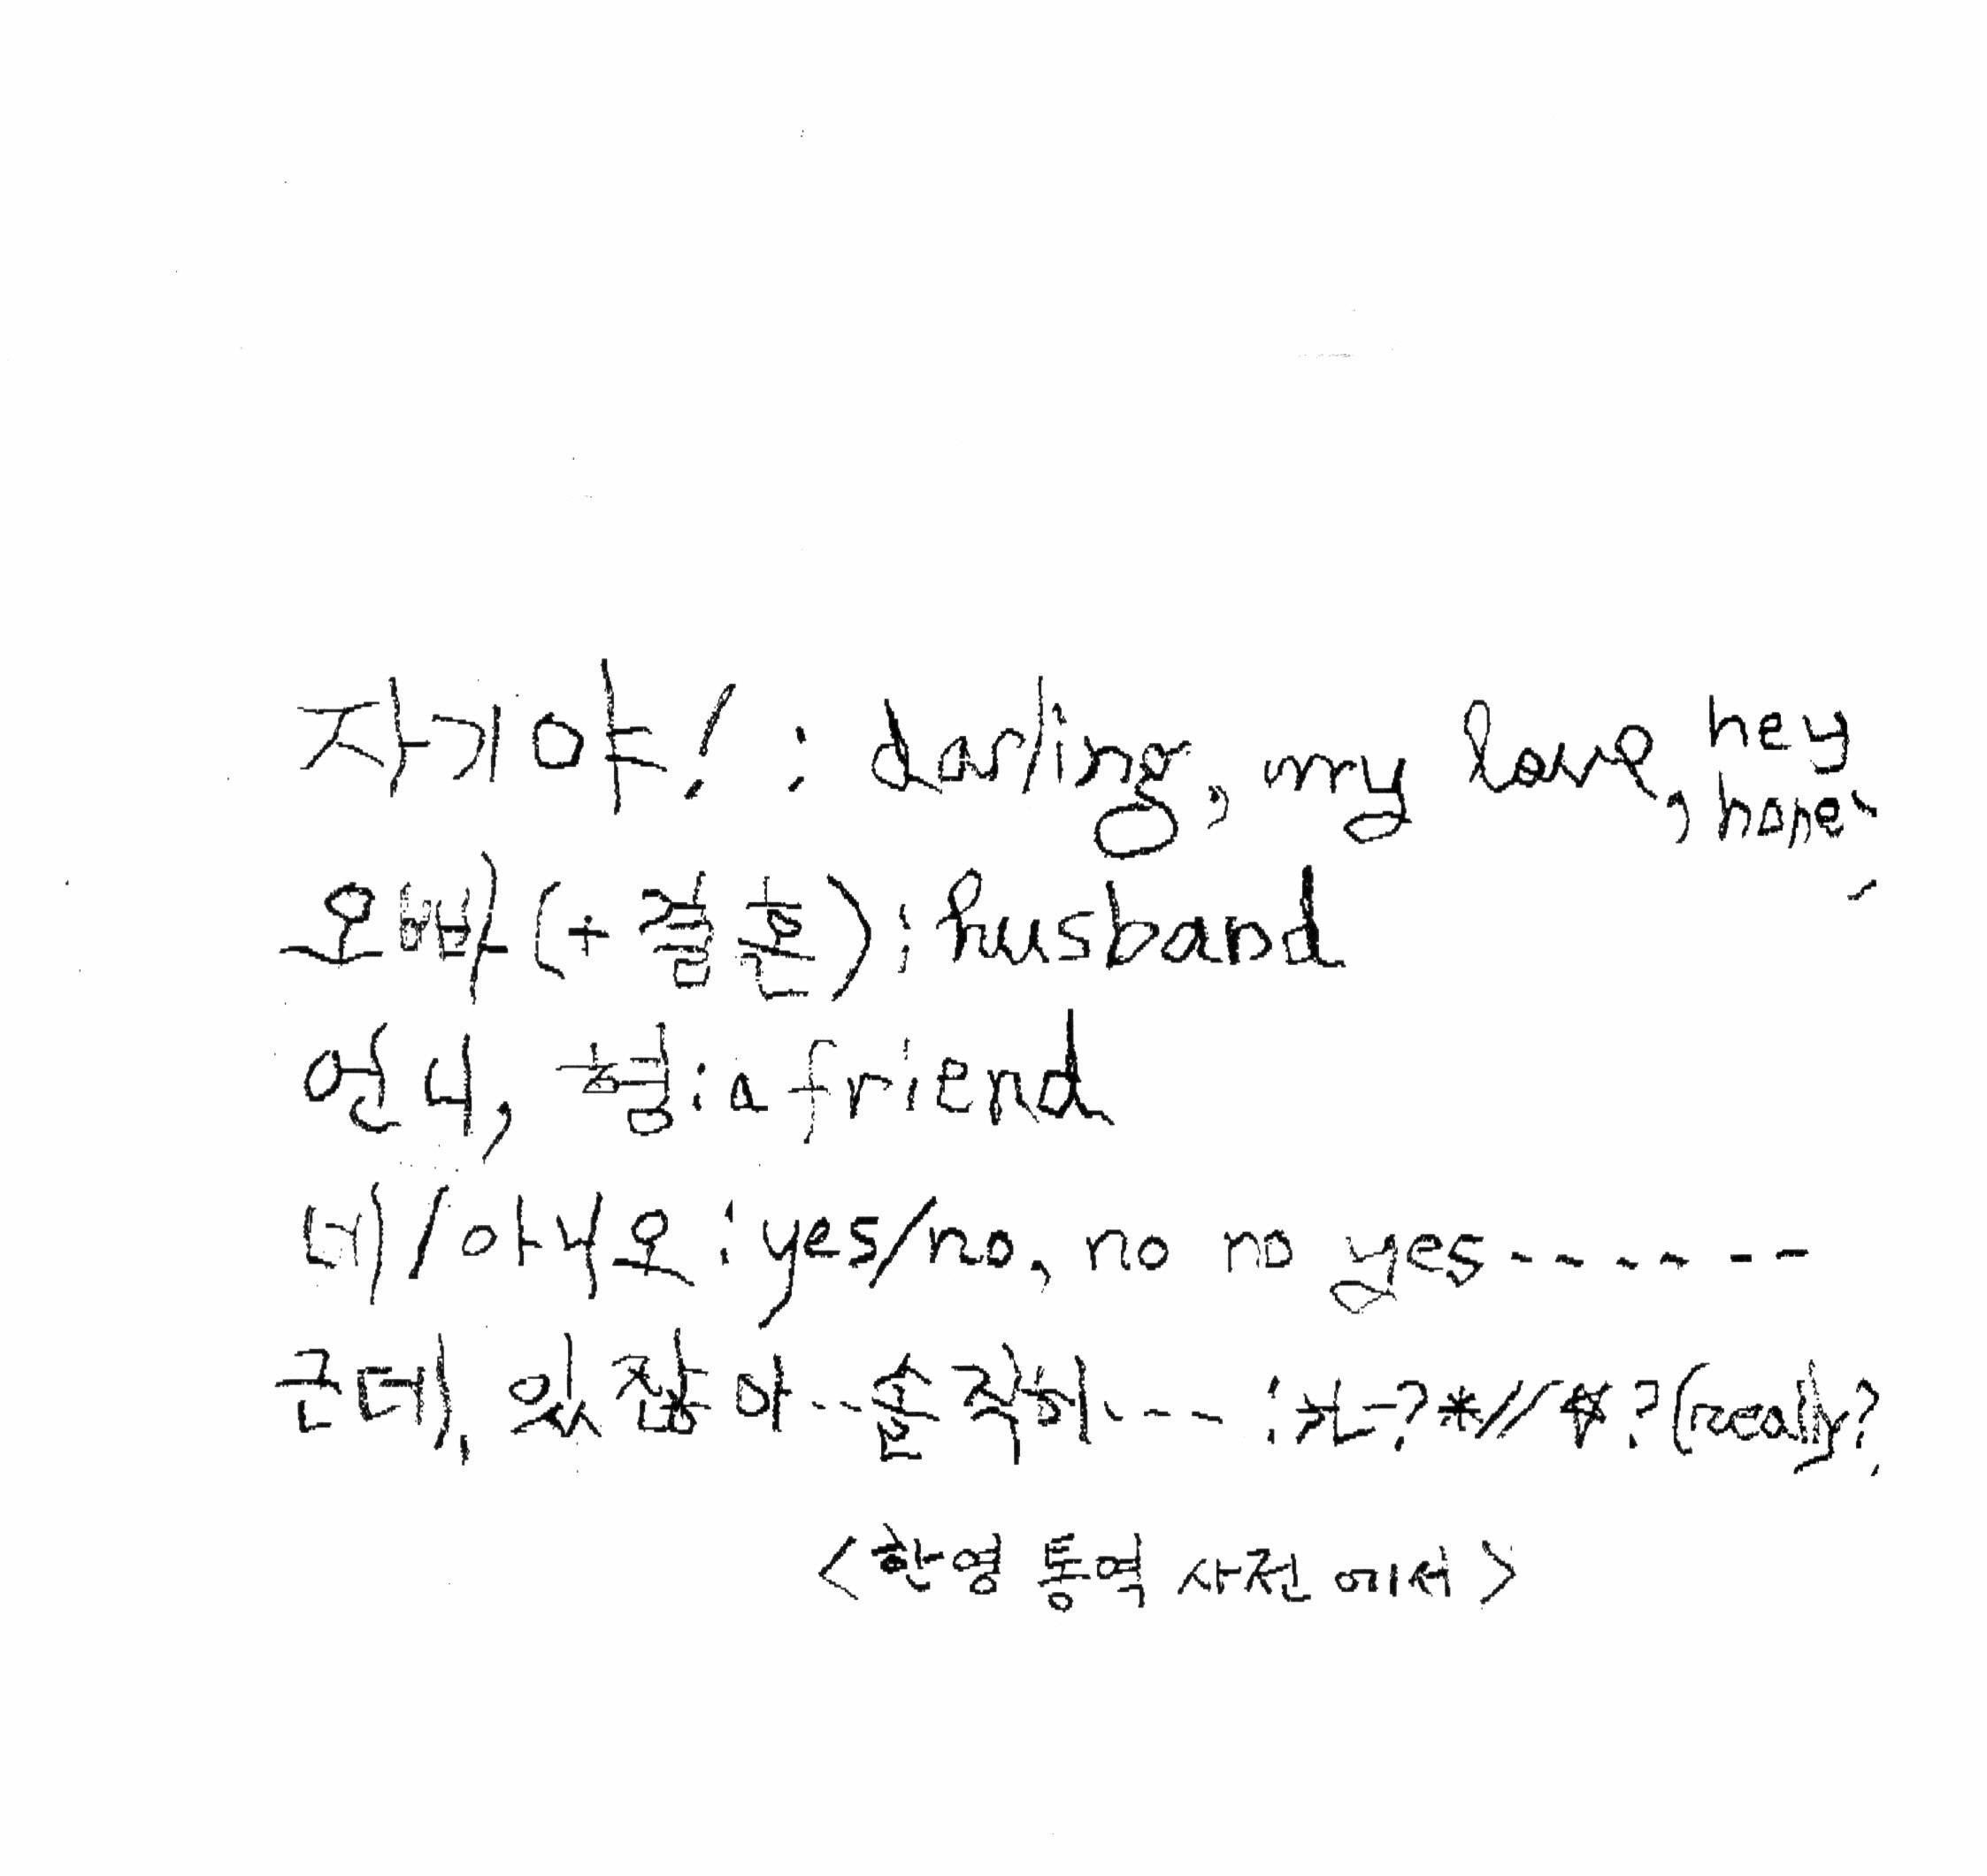 자기야! : darling, my love, hey, hone
오빠(+결혼) : husband
언니, 형 : a friend
네/아니요 : yes/no, no no yes-------
근데, 있잖아--솔직히--- : ?*//?(really?
<한영 통역 사전에서>